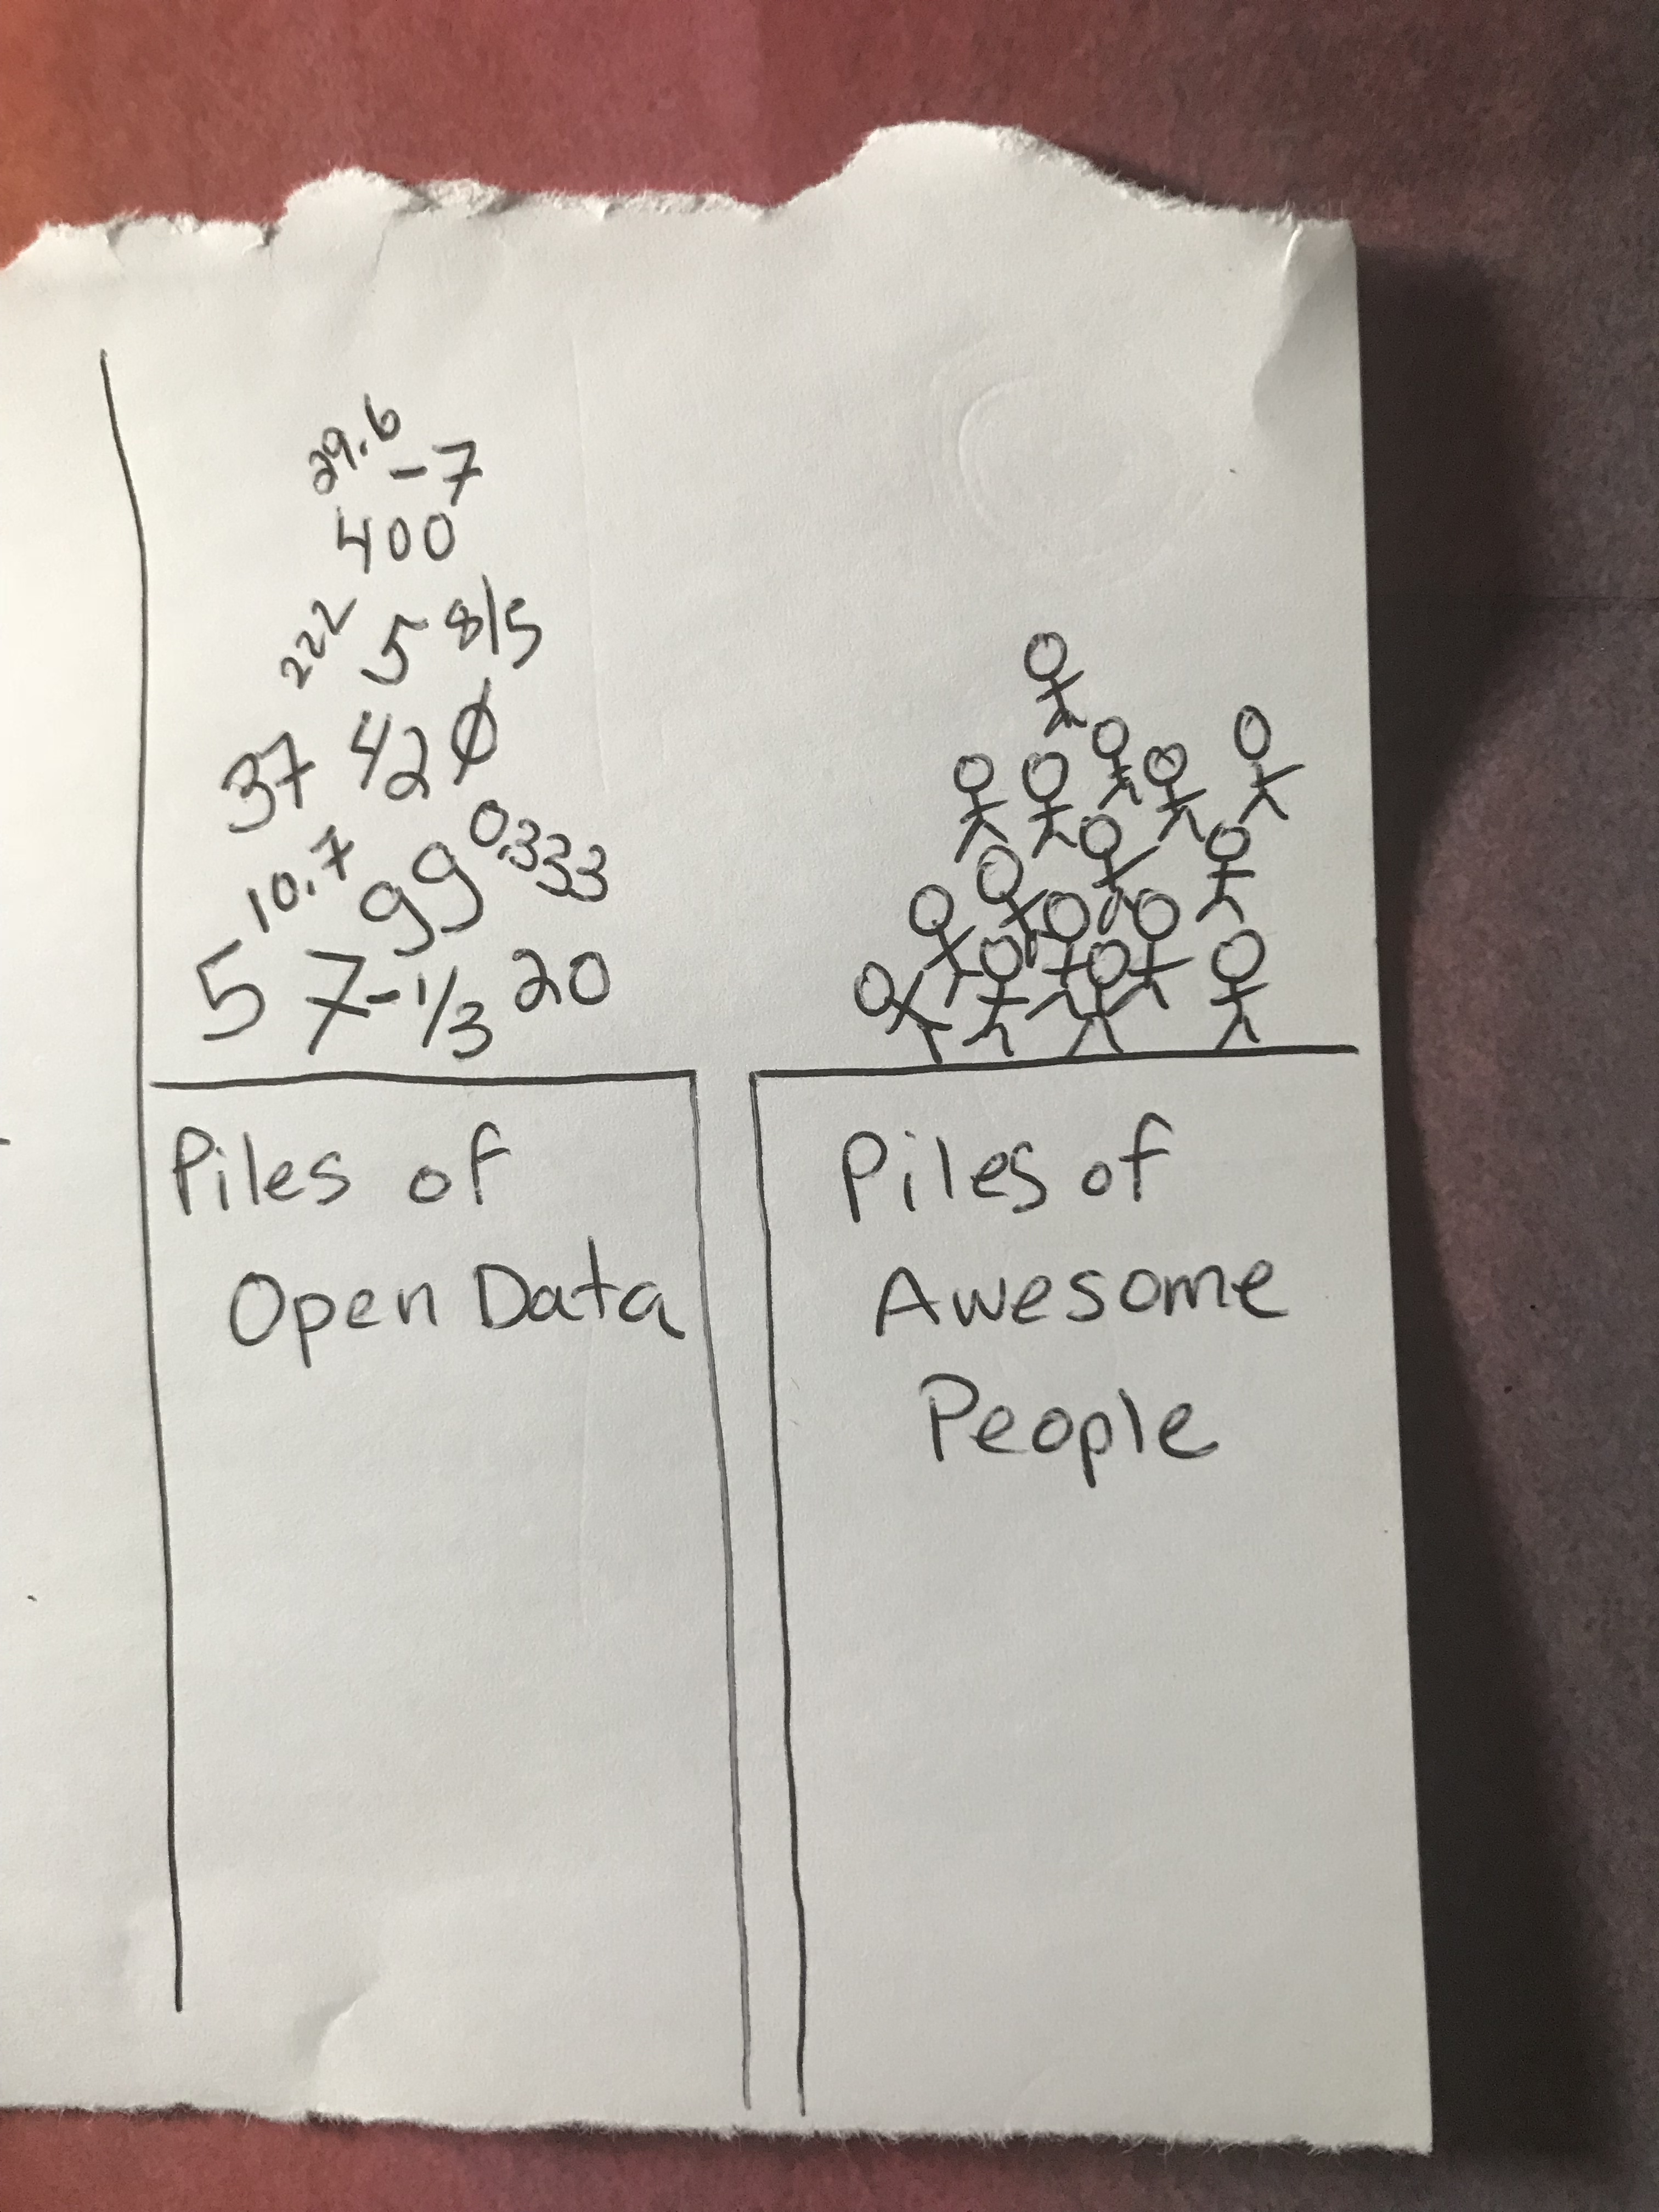 29.6
-7
400
222 5 8/5
37 42 Ø
10.7 99 0.333
5 7 -1/3 20
Piles of
Open Data
Piles of
Awesome
People